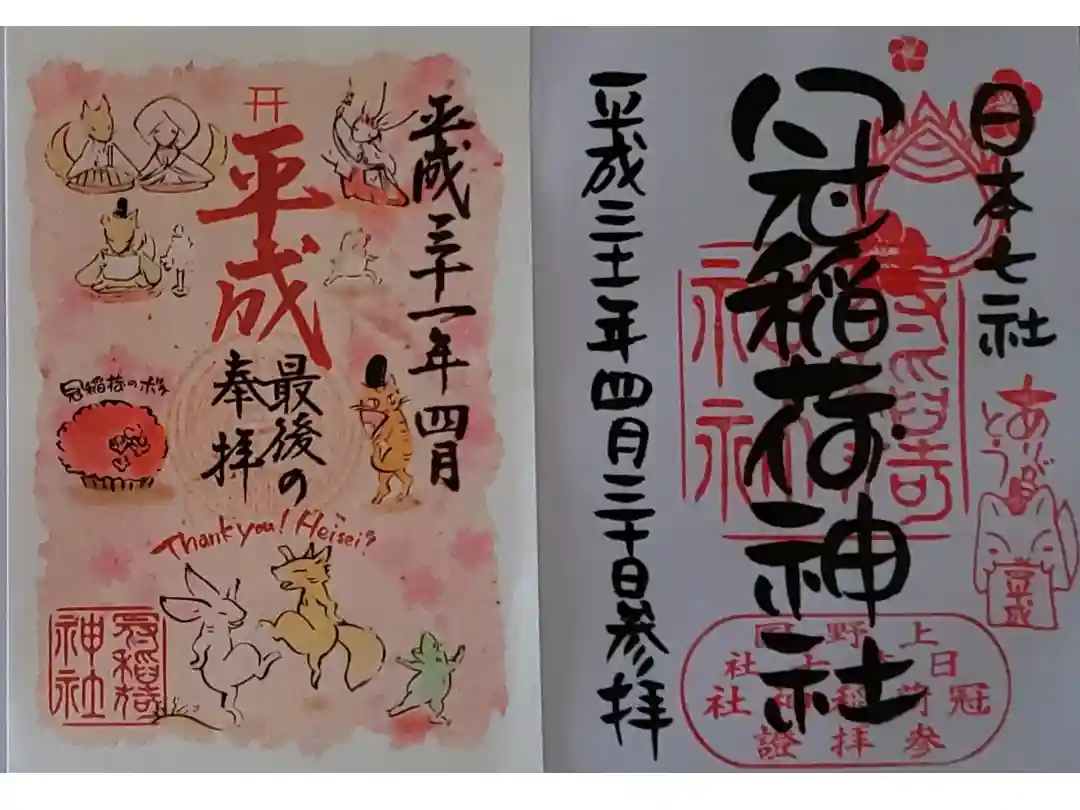 日本七社
ありが
とう
平成
冠稲荷神社
冠稲荷
神社
上野国
日本七社
冠稲荷神社
參拝證
平成三十一年四月三十日参拝
平成三十一年四月
平成
最後の
奉拝
冠稲荷のボケ
Thank you! Heisei
冠稲荷
神社